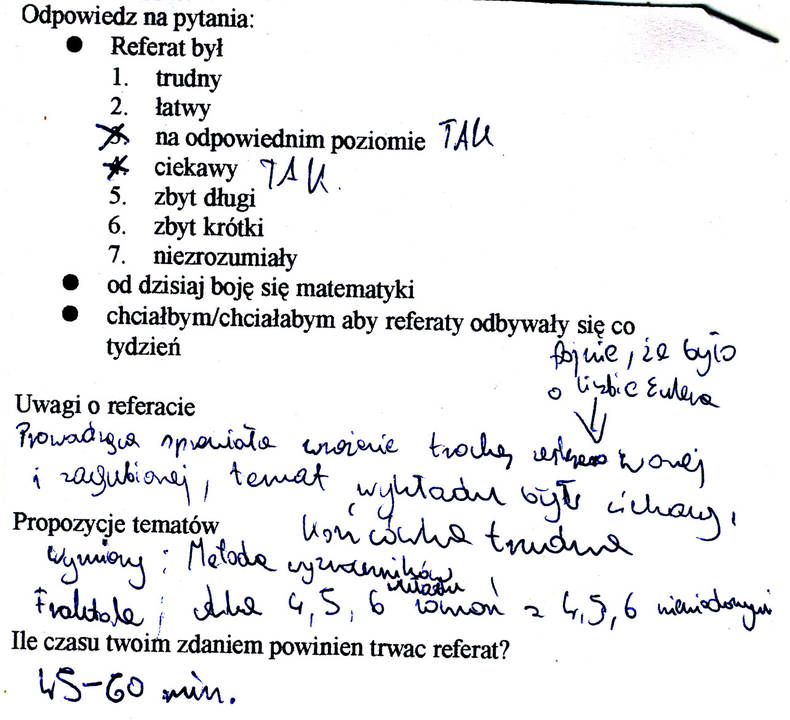 Odpowiedz na pytania:
● Referat był
1. trudny
2. łatwy
3. na odpowiednim poziomie TAK
4. ciekawy TAK.
5. zbyt długi
6. zbyt krótki
7. niezrozumiały
● od dzisiaj boję się matematyki
● chciałbym/chciałabym aby referaty odbywały się co
tydzień
fajnie, że było
o liczbie Eulera
Uwagi o referacie
Prowadząca sprawiała wrażenie trochę
i zagubionej, temat wykładu był ciekawy,
końcówka trudna
Propozycje tematów
Wymiary; Metoda wyznaczników
Fraktale; dla 4, 5, 6 równań z 4, 5, 6 niewiadomymi
Ile czasu twoim zdaniem powinien trwac referat?
45-60 min.